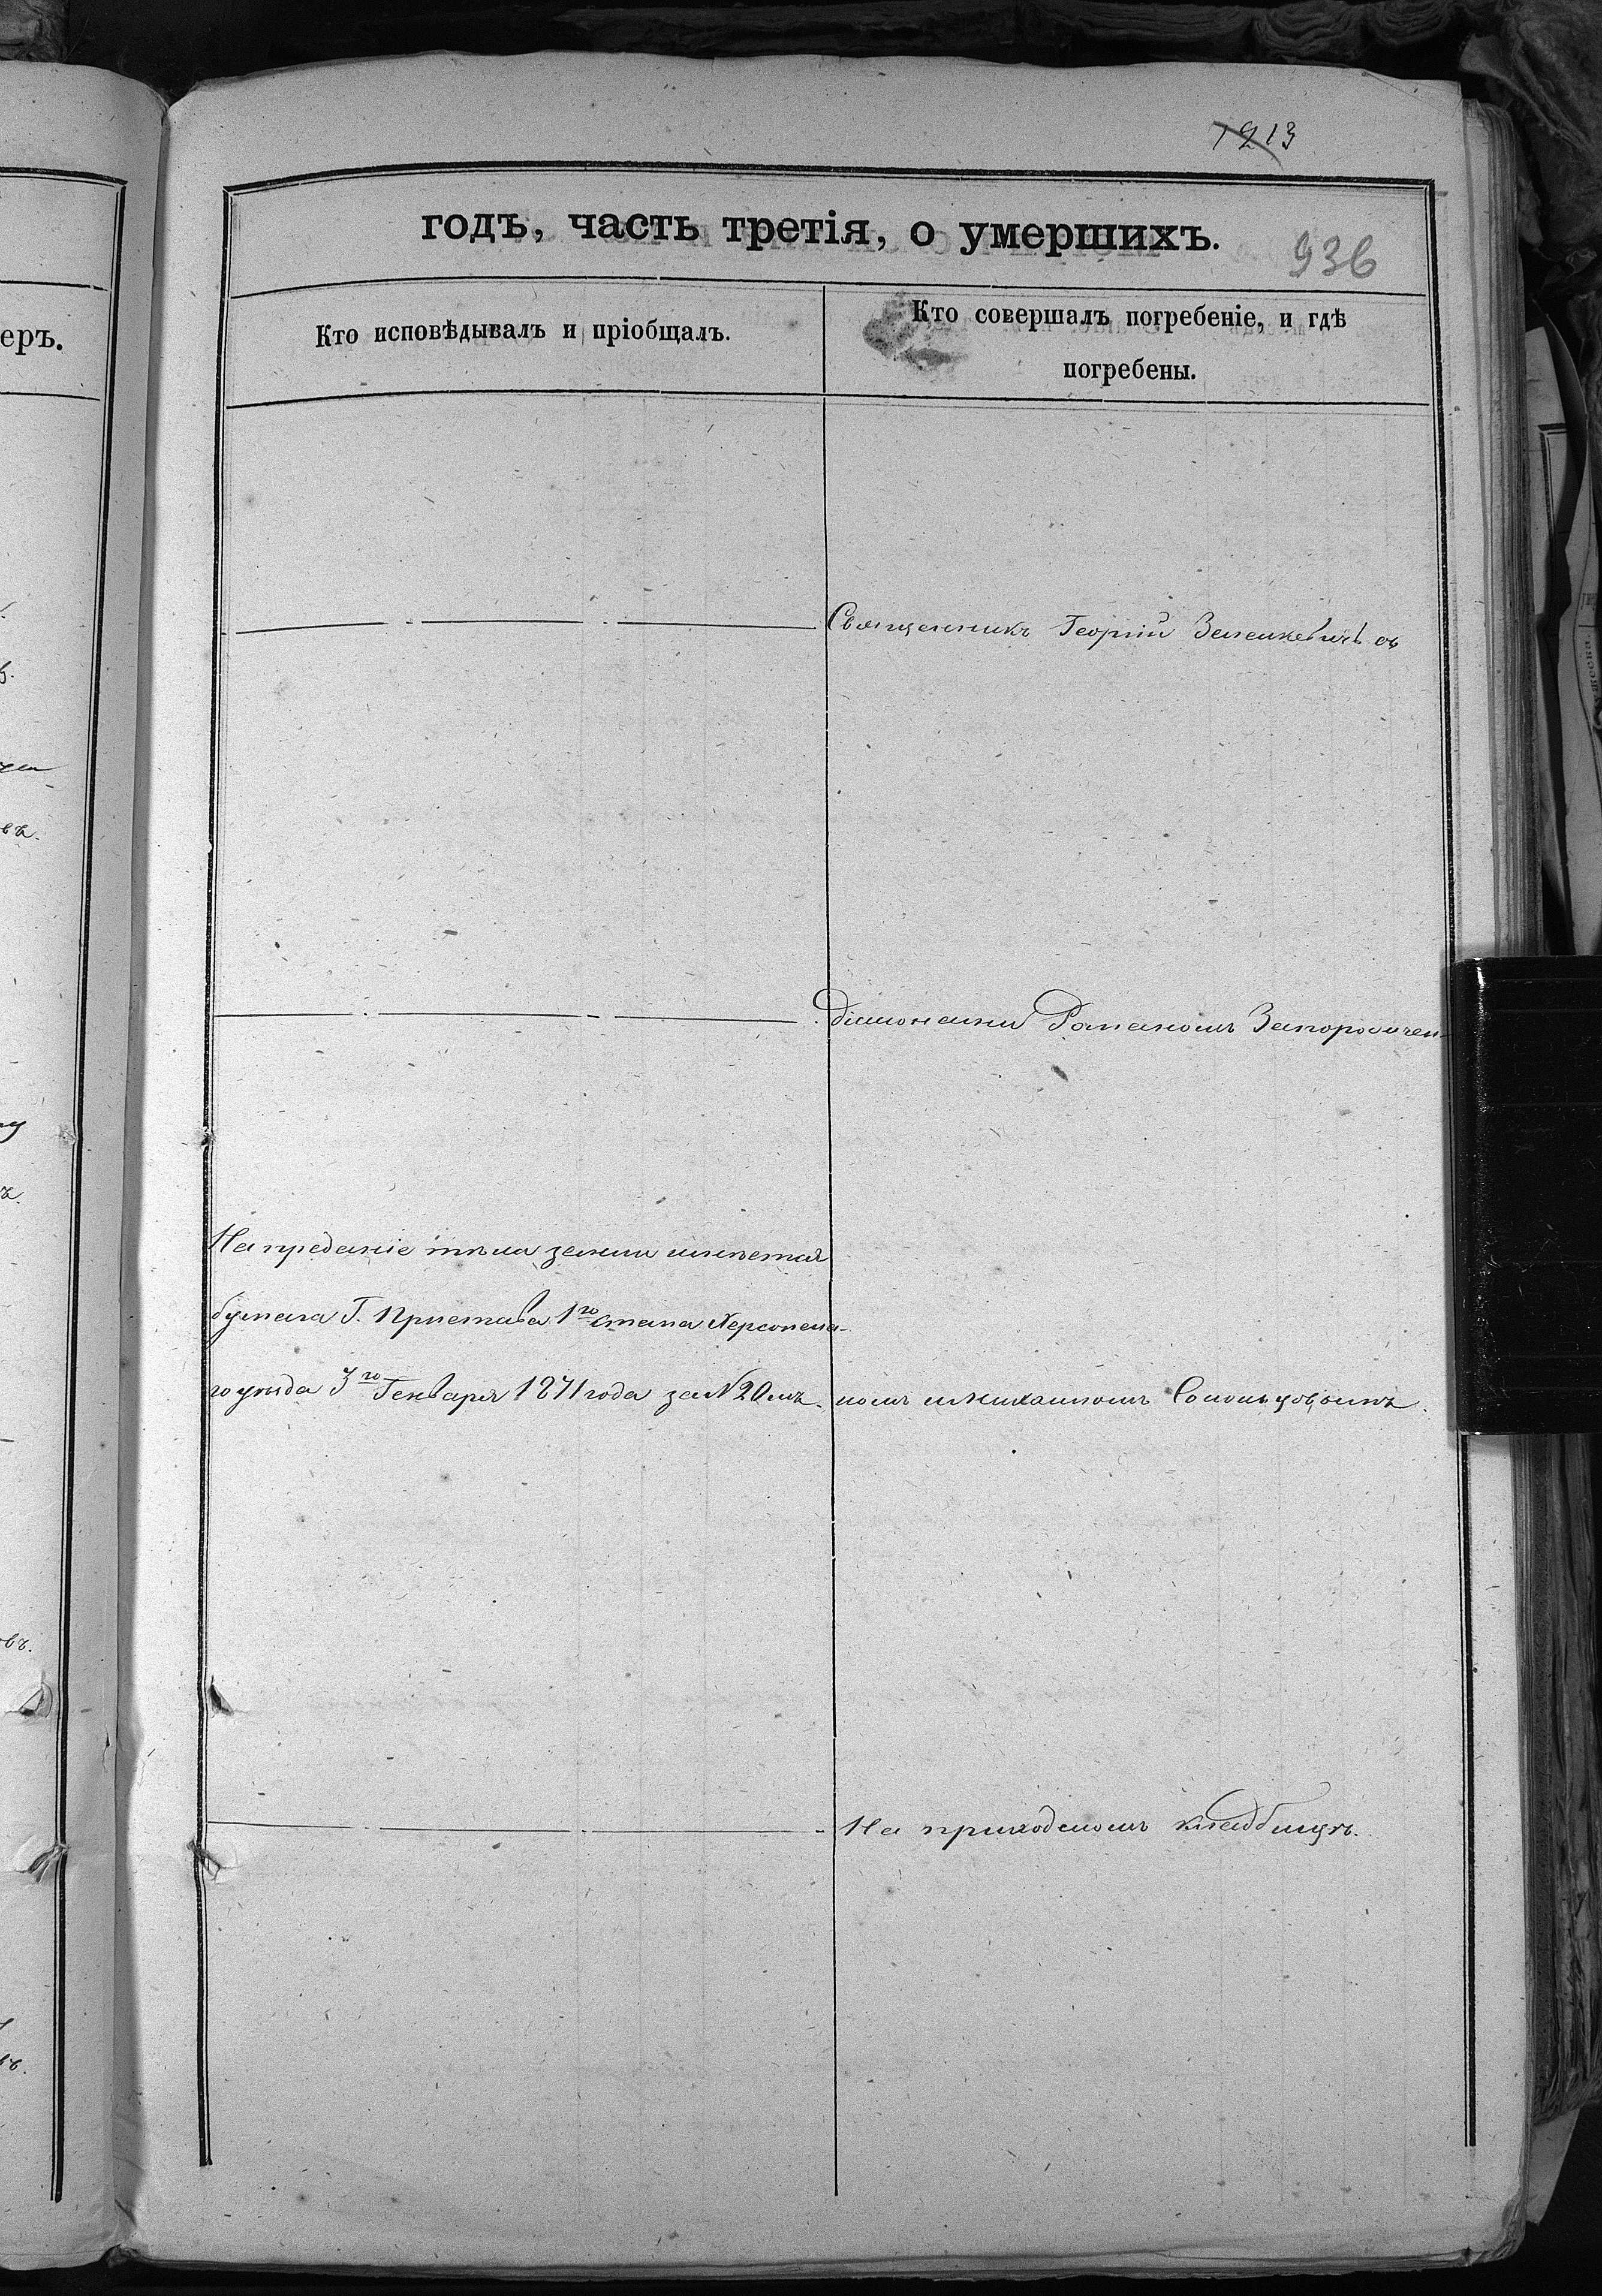 1213
годъ, часть третія, о умершихъ.
936
еръ.
Кто исповѣдывалъ и пріобщалъ.
Кто совершалъ погребеніе, и гдѣ
погребены.
Священникъ Георгій съ
Романомъ
На преданіе тѣла земли имѣется
бумага Г. Пристава 1го Стана Херсонска-
го уѣзда 3го Генваря 1871 года за N 20мъ.
номъ и Михаиломъ
На приходскомъ кладбищѣ.